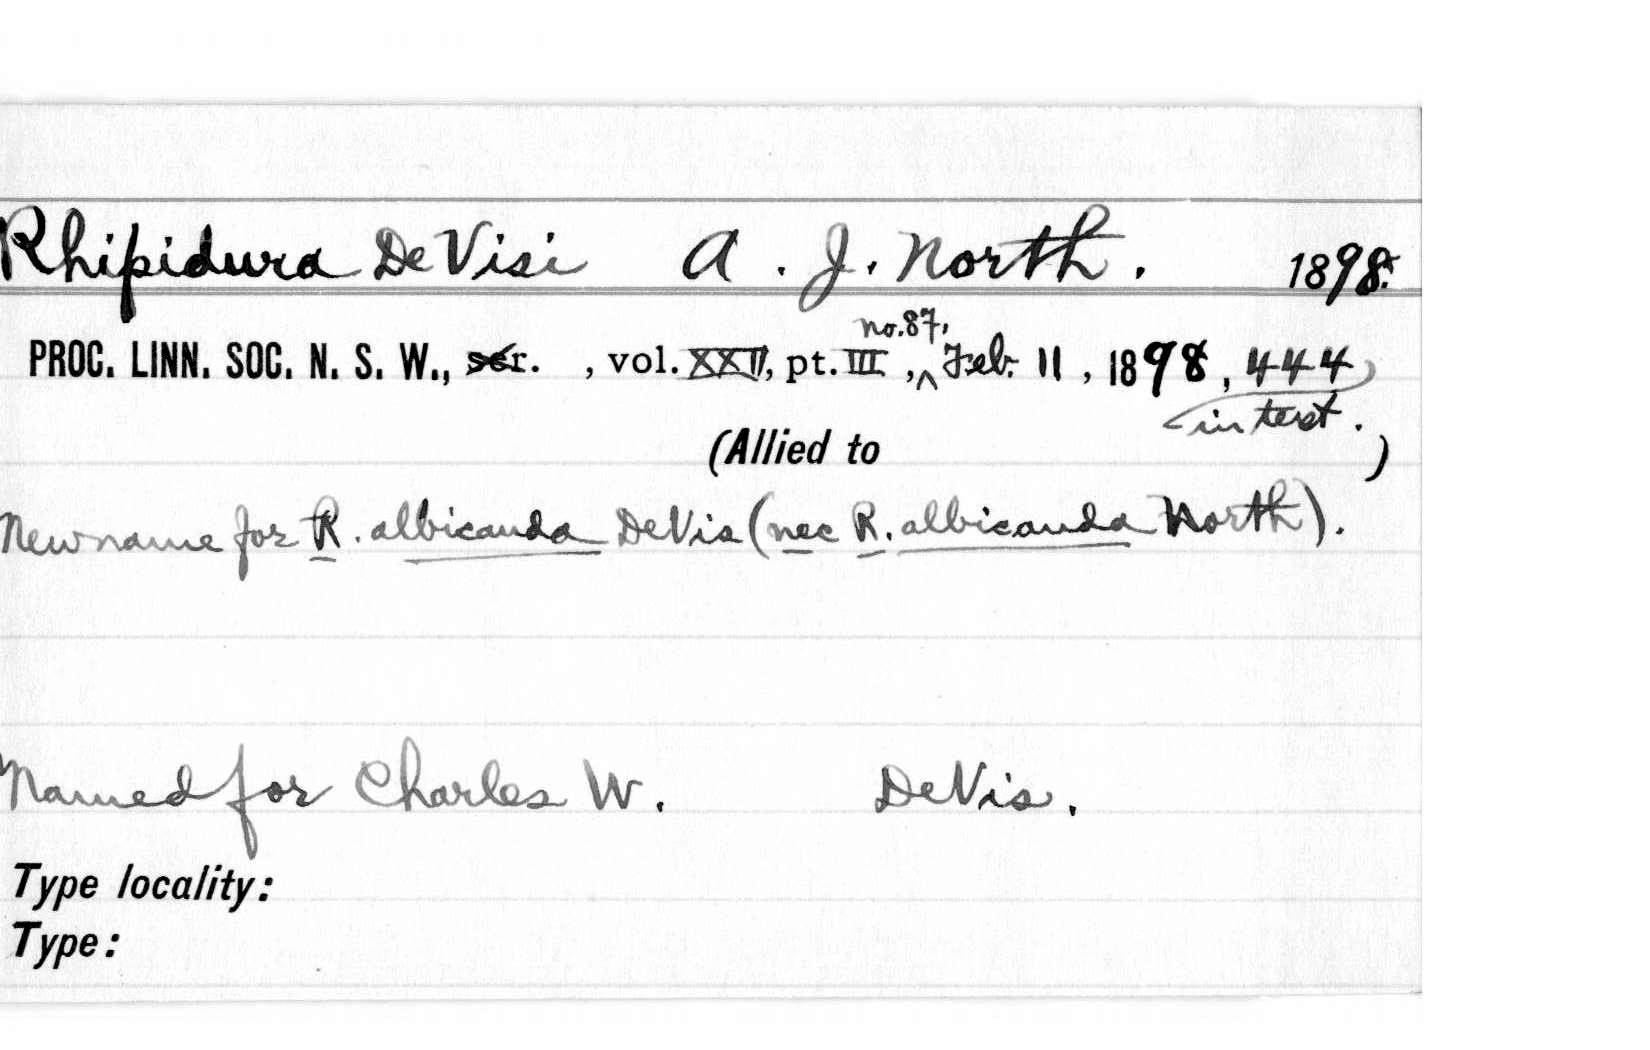 Rhipidura DeVisi A. J. North. 1898.
PROC. LINN. SOC. N. S. W., ser. , vol. XXII, pt. III, no. 87, Feb. 11, 1898, 444
in text.
(Allied to )
New name for R. albicauda DeVis (nec R. albicauda North).
Named for Charles W. DeVis.
Type locality:
Type: